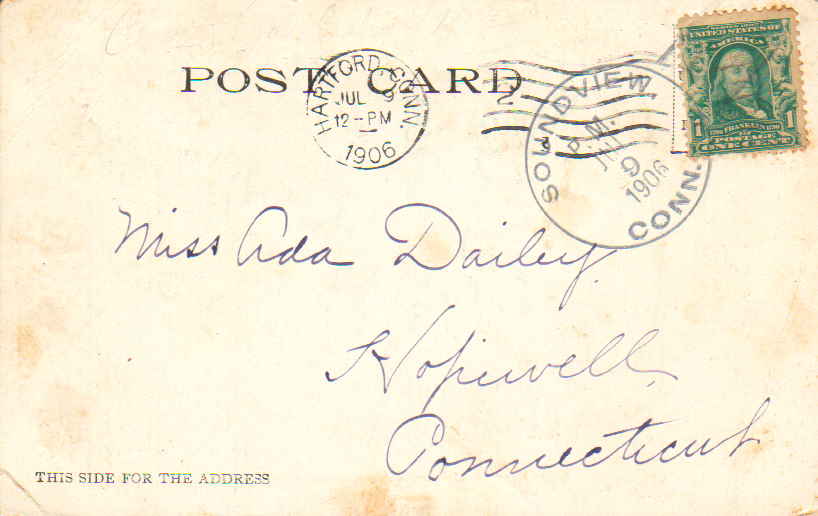 POST CARD
HARTFORD, CONN.
JUL 9
12-PM
1906
2
SOUNDVIEW.
P.M.
JUL
9
1906
CONN.
UNITED STATES OF
AMERICA
1
1
FRANKLIN
POSTAGE
ONE CENT
Miss Ada Dailey
Hopewell
Connecticut
THIS SIDE FOR THE ADDRESS